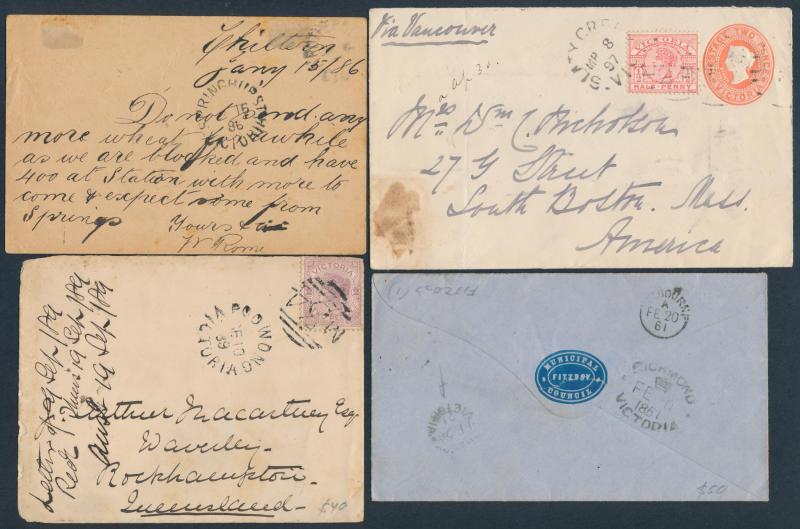 Chiltern
Jany 15/86
SPRINGHURST
15
86
VICTORIA
Do not send any
more wheat for awhile
as we are blocked and have
400 at Station with more to
come & expect some from
Springs
Yours &
W Rome
Via Vancouver
SLATY CREEK
MR 8
97
VICTORIA
VICTORIA
HALF-PENNY
POSTAGE TWO PENCE
VICTORIA
ap 30.
Mrs Wm C. Nicholson
27 G Street
South Boston. Mass.
America
Letter of 9 Sep/89
Recd 19 Sep/89
19 Sep/89
VICTORIA
POOWONG
SE 10
89
VICTORIA
Macartney Esq
Waverley.
Rockhampton.
Queensland
$40
Fitzroy (1)
MELBOURNE
A
FE 20
61
MUNICIPAL
FITZROY
COUNCIL
RICHMOND
FE
1861
VICTORIA
VICTORIA
$50